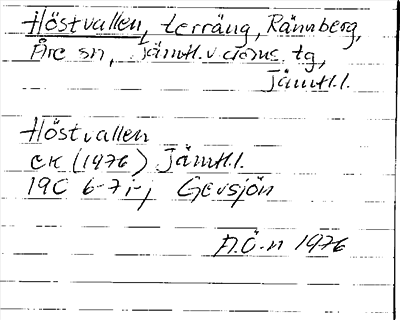 Höstvallen, terräng, Rännberg,
Åre sn, Jämtl. v. doms. tg,
Jämtl. l.
Höstvallen
EK (1976) Jämtl. l.
19C 6-7 i-j Gevsjön
A.Ö-n 1976